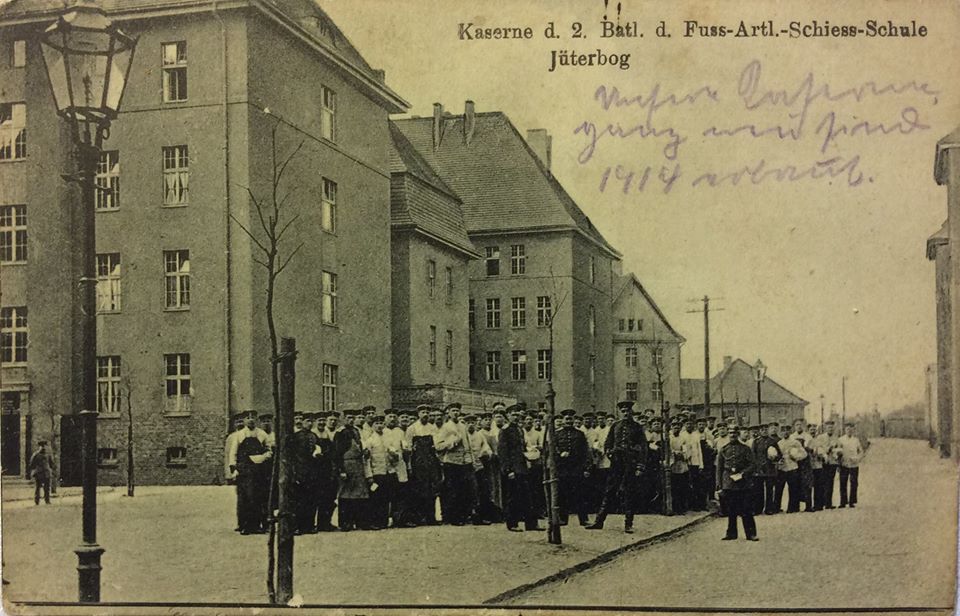 Kaserne d. 2. Batl. d. Fuss-Artl.-Schiess-Schule
Jüterbog
Unsere Kaserne,
ganz neu sind
1914 erbaut.